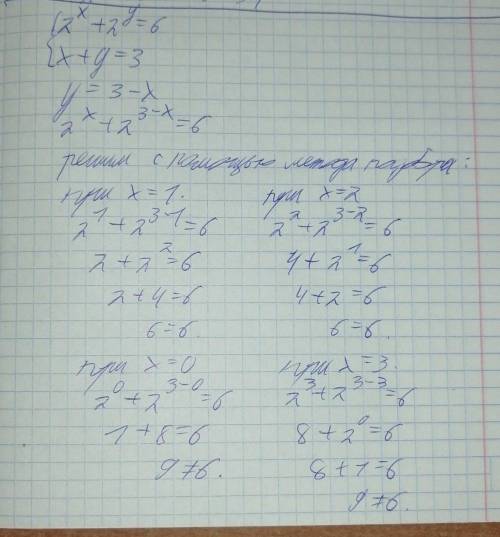 {2^x + 2^y = 6
{x + y = 3
y = 3 - x
2^x + 2^{3-x} = 6
решим с помощью метода подбора:
при x = 1.
2^1 + 2^{3-1} = 6
2 + 2^2 = 6
2 + 4 = 6
6 = 6.
при x = 2
2^2 + 2^{3-2} = 6
4 + 2^1 = 6
4 + 2 = 6
6 = 6.
при x = 0
2^0 + 2^{3-0} = 6
1 + 8 = 6
9 ≠ 6.
при x = 3.
2^3 + 2^{3-3} = 6
8 + 2^0 = 6
8 + 1 = 6
9 ≠ 6.